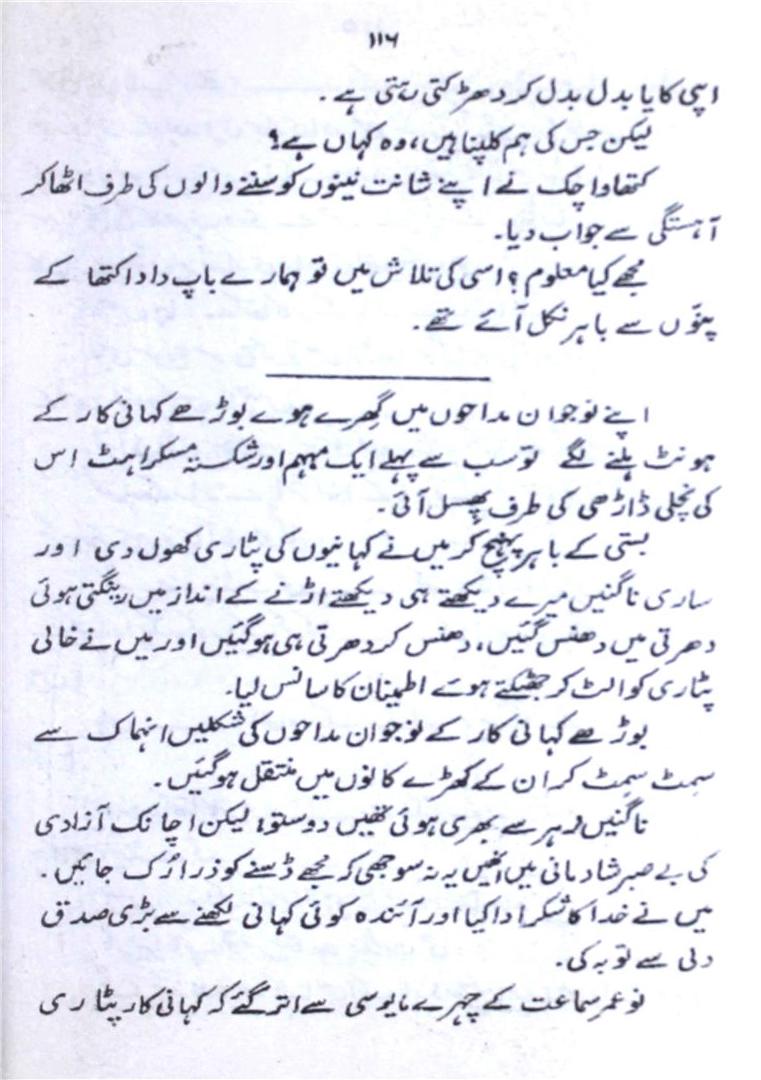 ۱۱۶
اسی کایا بدل بدل کر دھڑکتی رہتی ہے ۔
لیکن جس کی ہم کلپنا ہیں، وہ کہاں ہے؟
کتھا واچک نے اپنے شانت نینوں کو سننے والوں کی طرف اٹھا کر
آہستگی سے جواب دیا۔
مجھے کیا معلوم؟ اسی کی تلاش میں تو ہمارے باپ دادا کتھا کے
پنّوں سے باہر نکل آئے تھے۔
اپنے نوجوان مداحوں میں گھِرے ہوے بوڑھے کہانی کار کے
ہونٹ ہلنے لگے تو سب سے پہلے ایک مبہم اور شکستہ مسکراہٹ اس
کی نچلی ڈاڑھی کی طرف پھِسل آئی۔
بستی کے باہر پہنچ کر میں نے کہانیوں کی پٹاری کھول دی اور
ساری ناگنیں میرے دیکھتے ہی دیکھتے اڑنے کے انداز میں رینگتی ہوئی
دھرتی میں دھنس گئیں، دھنس کر دھرتی ہی ہو گئیں اور میں نے خالی
پٹاری کو الٹ کر جھٹکتے ہوئے اطمینان کا سانس لیا۔
بوڑھے کہانی کار کے نوجوان مداحوں کی شکلیں انہماک سے
سِمٹ سِمٹ کر ان کے کھڑے کانوں میں منتقل ہو گئیں۔
ناگنیں زہر سے بھری ہوئی تھیں دوستو؛ لیکن اچانک آزادی
کی بے صبر شادمانی میں انھیں یہ نہ سوجھی کہ مجھے ڈسنے کو ذرا رُک جائیں۔
میں نے خدا کا شکر ادا کیا اور آئندہ کوئی کہانی لکھنے سے بڑی صدق
دلی سے توبہ کی۔
نوعمر سماعت کے چہرے مایوسی سے اتر گئے کہ کہانی کار پٹاری